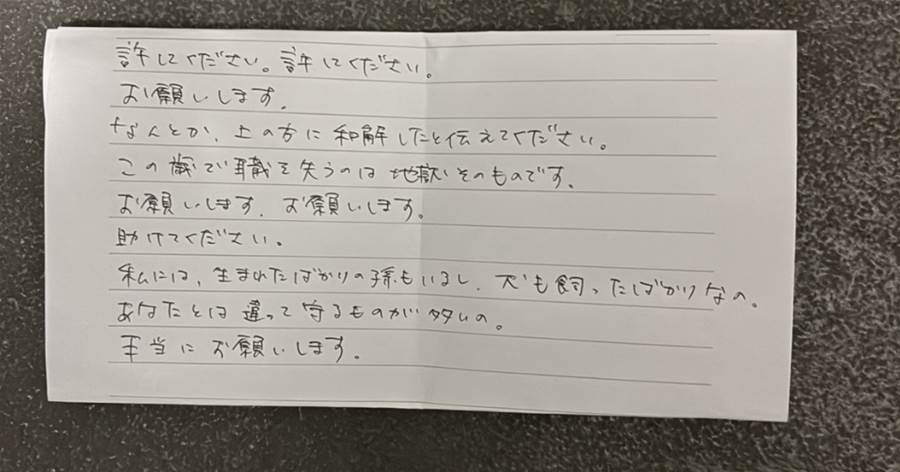 許してください。許してください。
お願いします。
なんとか、上の方に和解したと伝えてください。
この歳で職を失うのは地獄そのものです。
お願いします、お願いします。
助けてください。
私には、生まれたばかりの孫もいるし、犬も飼ったばかりなの。
あなたとは違って守るものが多いの。
本当にお願いします。